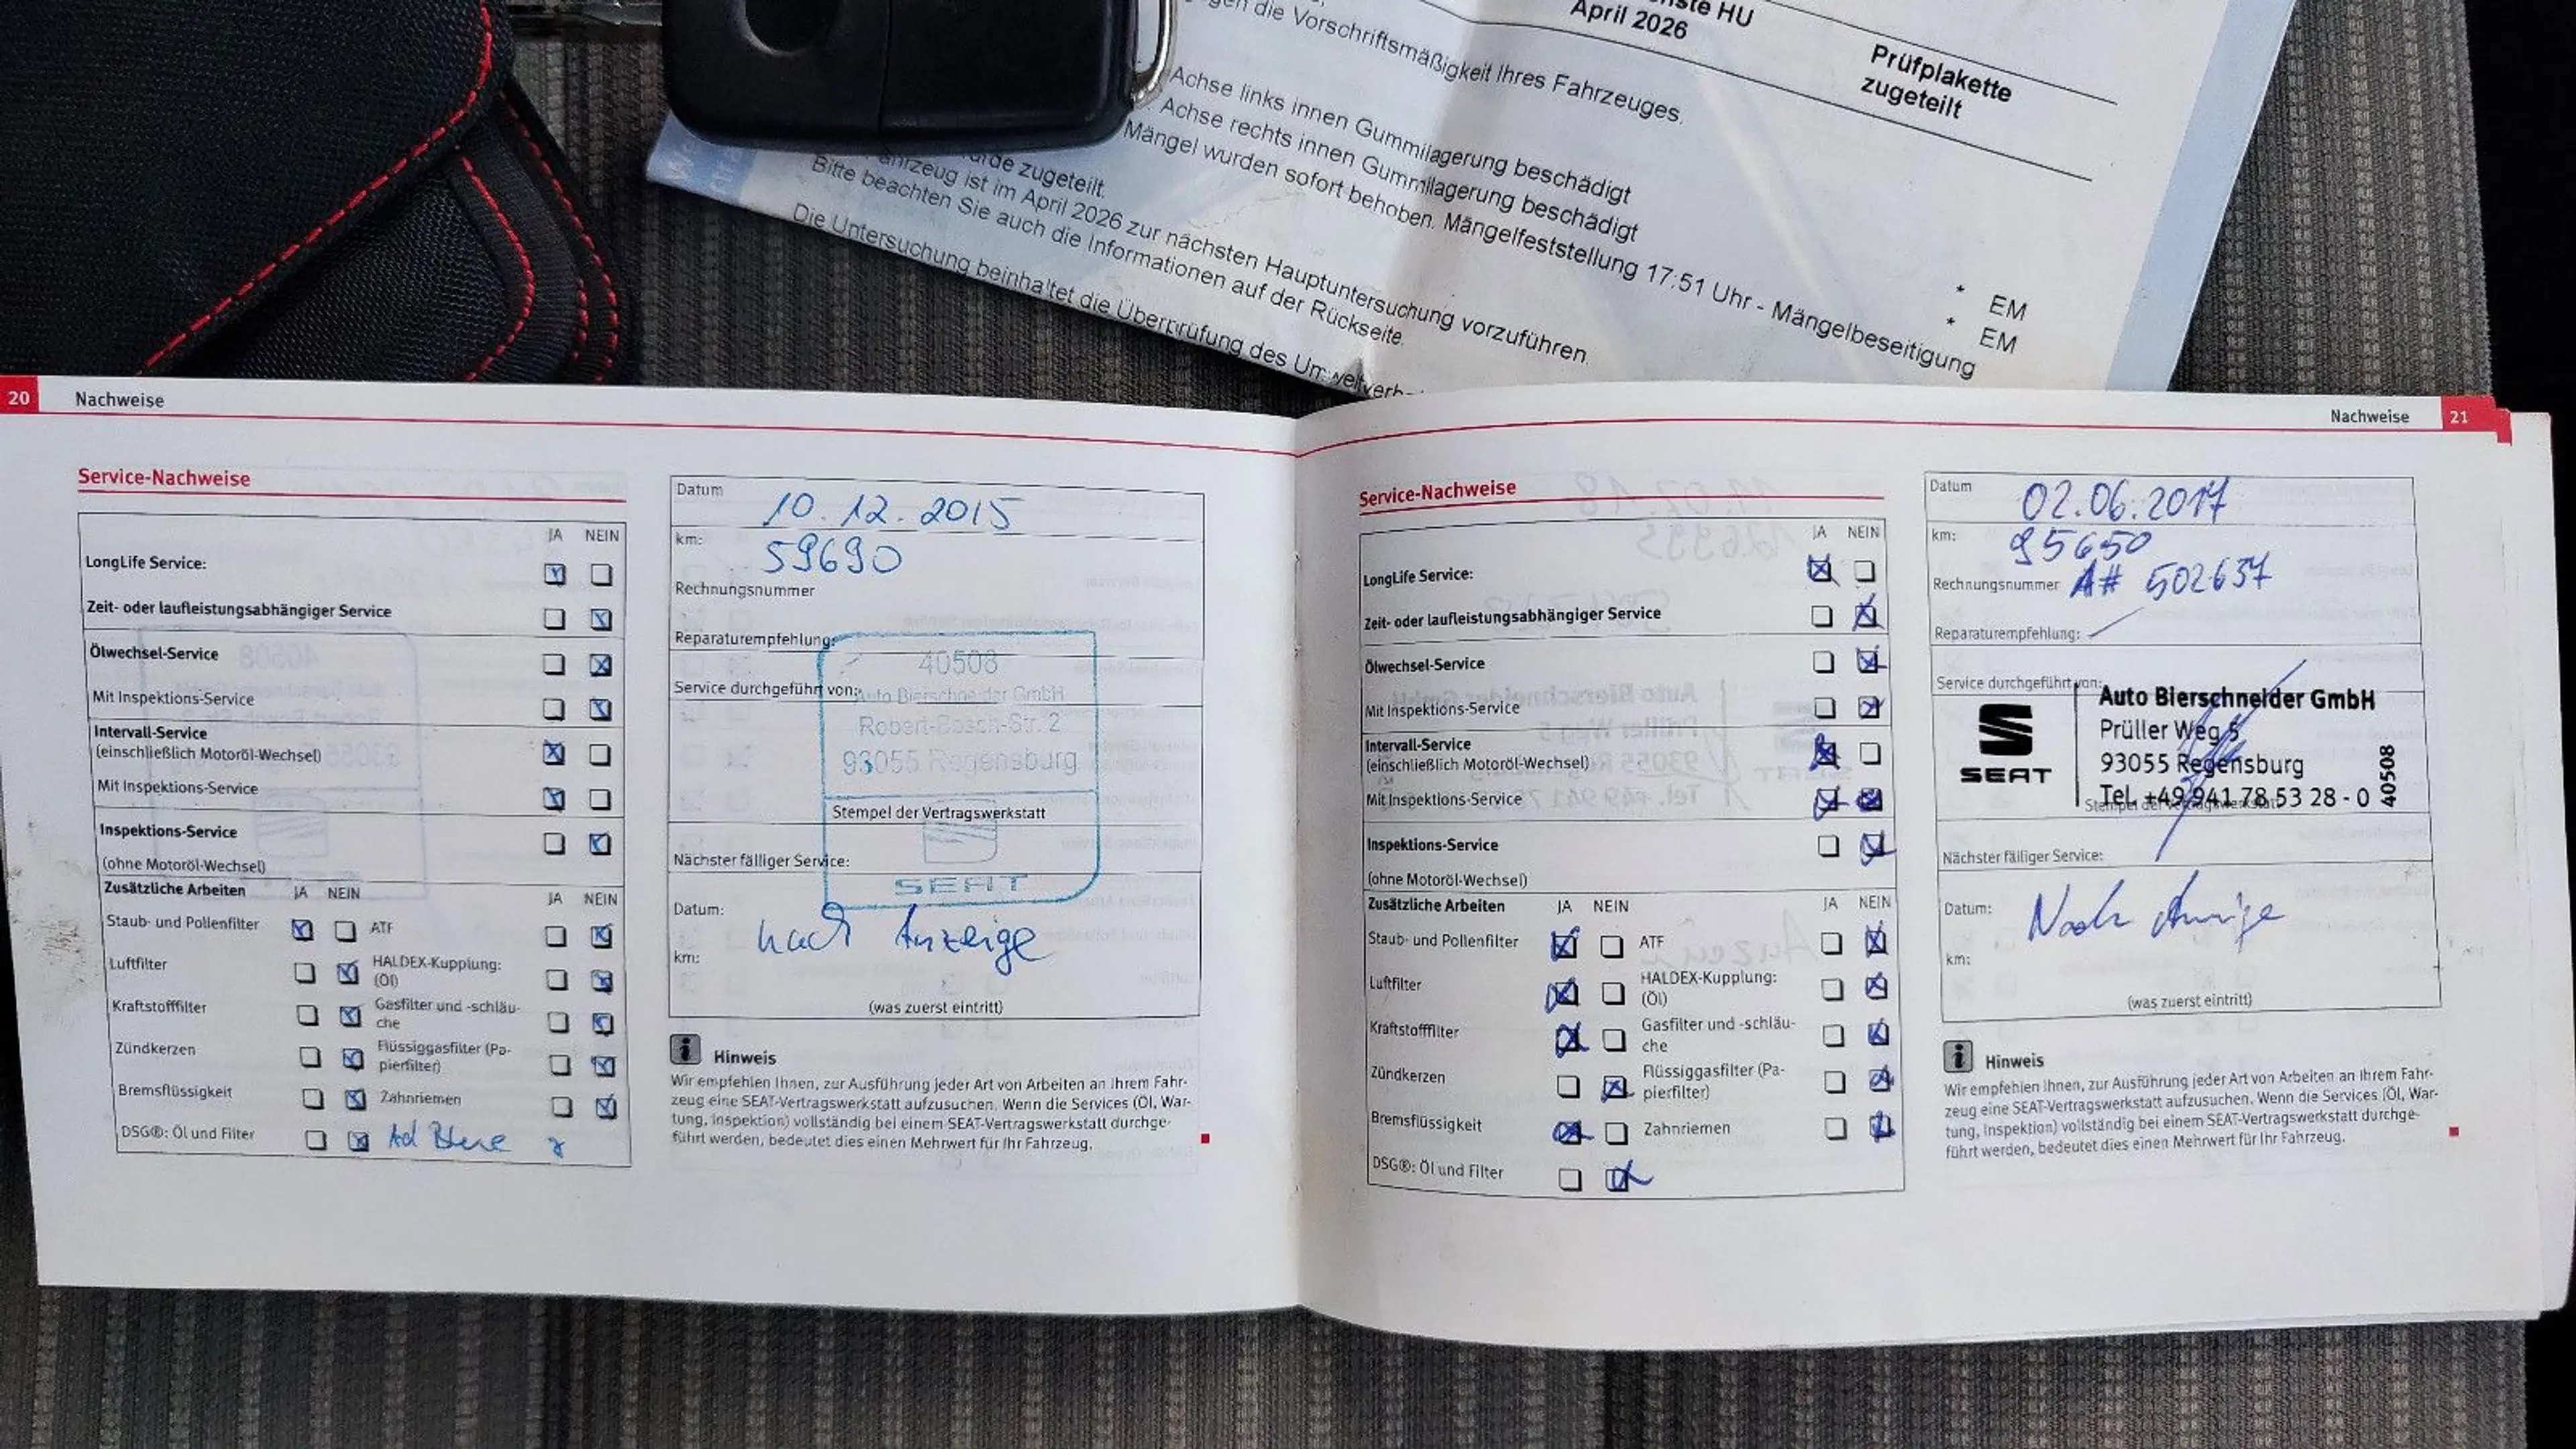 nste HU
April 2026
Prüfplakette
zugeteilt
gen die Vorschriftsmäßigkeit Ihres Fahrzeuges.
Achse links innen Gummilagerung beschädigt
Achse rechts innen Gummilagerung beschädigt
Mängel wurden sofort behoben. Mängelfeststellung 17:51 Uhr - Mängelbeseitigung
* EM
* EM
urde zugeteilt.
ahrzeug ist im April 2026 zur nächsten Hauptuntersuchung vorzuführen.
Bitte beachten Sie auch die Informationen auf der Rückseite.
Die Untersuchung beinhaltet die Überprüfung des Umweltverh
20 Nachweise
Service-Nachweise
JA NEIN
LongLife Service:
Zeit- oder laufleistungsabhängiger Service
Ölwechsel-Service
Mit Inspektions-Service
Intervall-Service
(einschließlich Motoröl-Wechsel)
Mit Inspektions-Service
Inspektions-Service
(ohne Motoröl-Wechsel)
Zusätzliche Arbeiten JA NEIN JA NEIN
Staub- und Pollenfilter ATF
Luftfilter HALDEX-Kupplung:
(Öl)
Kraftstofffilter Gasfilter und -schläu-
che
Zündkerzen Flüssiggasfilter (Pa-
pierfilter)
Bremsflüssigkeit Zahnriemen
DSG®: Öl und Filter Ad Blue
Datum 10.12.2015
km: 59690
Rechnungsnummer
Reparaturempfehlung:
40508
Service durchgeführt von:
Auto Bierschneider GmbH
Robert-Bosch-Str. 2
93055 Regensburg
Stempel der Vertragswerkstatt
Nächster fälliger Service:
SEAT
Datum: nach Anzeige
km:
(was zuerst eintritt)
Hinweis
Wir empfehlen Ihnen, zur Ausführung jeder Art von Arbeiten an Ihrem Fahr-
zeug eine SEAT-Vertragswerkstatt aufzusuchen. Wenn die Services (Öl, War-
tung, Inspektion) vollständig bei einem SEAT-Vertragswerkstatt durchge-
führt werden, bedeutet dies einen Mehrwert für Ihr Fahrzeug.
Nachweise 21
Service-Nachweise
JA NEIN
LongLife Service:
Zeit- oder laufleistungsabhängiger Service
Ölwechsel-Service
Mit Inspektions-Service
Intervall-Service
(einschließlich Motoröl-Wechsel)
Mit Inspektions-Service
Inspektions-Service
(ohne Motoröl-Wechsel)
Zusätzliche Arbeiten JA NEIN JA NEIN
Staub- und Pollenfilter ATF
Luftfilter HALDEX-Kupplung:
(Öl)
Kraftstofffilter Gasfilter und -schläu-
che
Zündkerzen Flüssiggasfilter (Pa-
pierfilter)
Bremsflüssigkeit Zahnriemen
DSG®: Öl und Filter
Datum 02.06.2017
km: 95650
Rechnungsnummer A# 502637
Reparaturempfehlung:
Service durchgeführt von:
SEAT
Auto Bierschneider GmbH
Prüller Weg 5
93055 Regensburg
Tel. +49 941 78 53 28 - 0
40508
Stempel der Vertragswerkstatt
Nächster fälliger Service:
Datum: Nach Anzeige
km:
(was zuerst eintritt)
Hinweis
Wir empfehlen Ihnen, zur Ausführung jeder Art von Arbeiten an Ihrem Fahr-
zeug eine SEAT-Vertragswerkstatt aufzusuchen. Wenn die Services (Öl, War-
tung, Inspektion) vollständig bei einem SEAT-Vertragswerkstatt durchge-
führt werden, bedeutet dies einen Mehrwert für Ihr Fahrzeug.